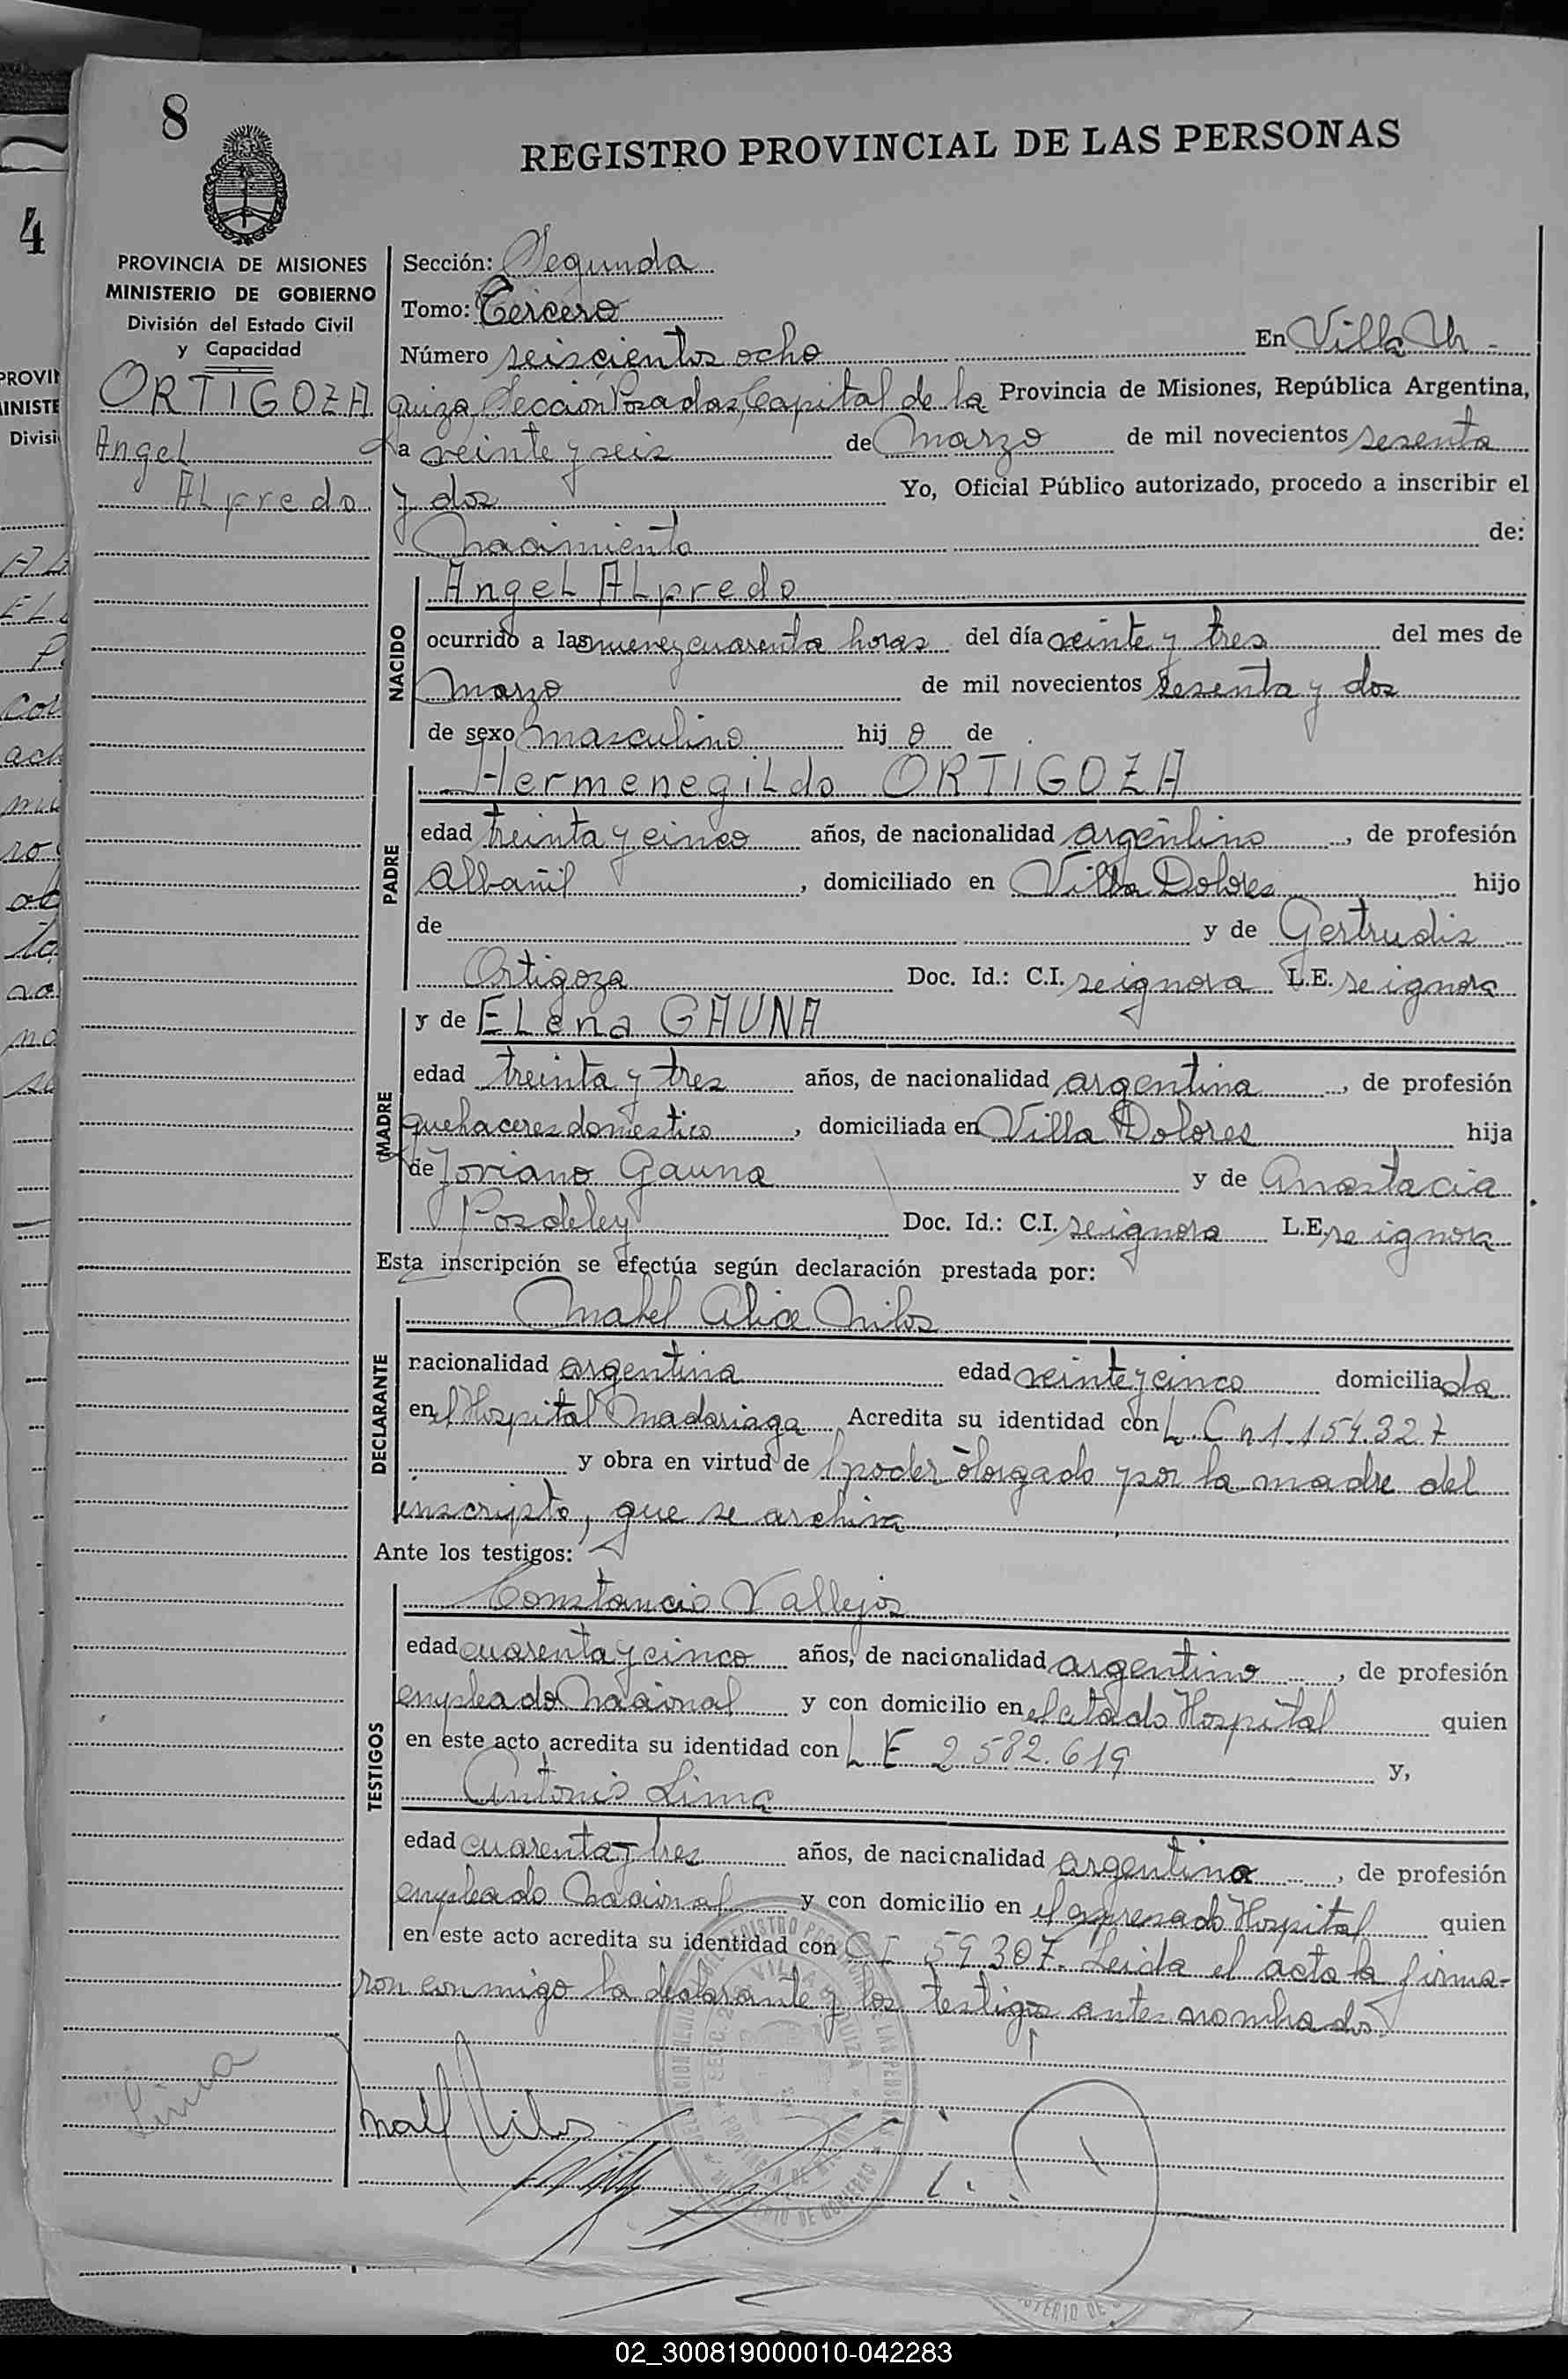 8
REGISTRO PROVINCIAL DE LAS PERSONAS
4
PROVINCIA DE MISIONES
MINISTERIO DE GOBIERNO
División del Estado Civil
y Capacidad
ORTIGOZA
Angel
ALfredo
Sección: Segunda
Tomo: Tercero
Número seiscientos ocho En Villa Ur-
quiza, Sección Posadas, Capital de la Provincia de Misiones, República Argentina,
a veinte y seis de Marzo de mil novecientos sesenta
y dos Yo, Oficial Público autorizado, procedo a inscribir el
Nacimiento de:
NACIDO
AngeL ALfredo
ocurrido a las nueve y cuarenta horas del día veinte y tres del mes de
Marzo de mil novecientos sesenta y dos
de sexo masculino hij o de
PADRE
HermenegiLdo ORTIGOZA
edad treinta y cinco años, de nacionalidad argentino, de profesión
Albañil, domiciliado en Villa Dolores hijo
de y de Gertrudis
Ortigoza Doc. Id.: C.I. se ignora L.E. se ignora
MADRE
y de ELena GAUNA
edad treinta y tres años, de nacionalidad argentina, de profesión
quehaceres domestico, domiciliada en Villa Dolores hija
de Gauna y de Anastacia
Doc. Id.: C.I. se ignora L.E. se ignora
Esta inscripción se efectúa según declaración prestada por:
DECLARANTE
Mabel Alice Milos
nacionalidad argentina edad veinte y cinco domiciliada
en el Hospital Madariaga Acredita su identidad con L. C n 1.154.327
y obra en virtud de poder otorgado por la madre del
inscripto, que se archiva
Ante los testigos:
TESTIGOS
Constancio Vallejos
edad cuarenta y cinco años, de nacionalidad argentino, de profesión
empleado Nacional y con domicilio en el citado Hospital quien
en este acto acredita su identidad con L E 2 582.619 y,
Antonio Lima
edad cuarenta y tres años, de nacionalidad argentino, de profesión
empleado Nacional y con domicilio en el expresado Hospital quien
en este acto acredita su identidad con C I 59307. Leida el acta la firma-
ron conmigo la declarante y los testigos antes nombrados
Lima
02_300819000010-042283